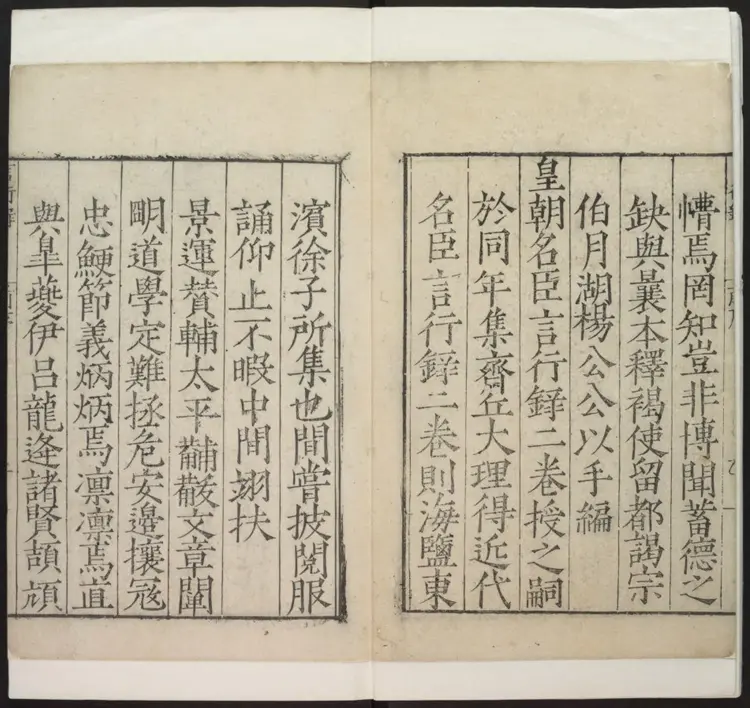 懵焉罔知豈非博聞蓄德之
缺與曩本釋褐使留都謁宗
伯月湖楊公公以手編
皇朝名臣言行録二卷授之嗣
於同年集齋丘大理得近代
名臣言行録二卷則海鹽東
濱徐子所集也間嘗披閲服
誦仰止不暇中間翊扶
景運賛輔太平黼黻文章闡
明道學定難拯危安邊攘冦
忠鯁節義炳炳焉凛凛焉直
與臯夔伊吕龍逄諸賢頡頏